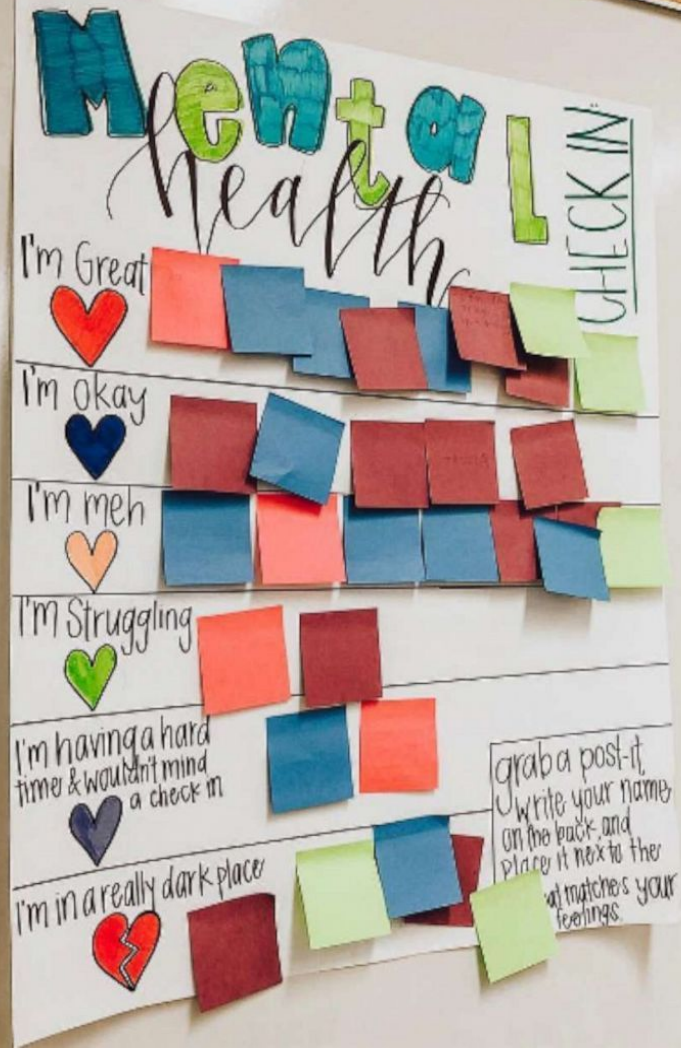 Mental
health
CHECK IN:
I'm Great
I'm okay
I'm meh
I'm Struggling
I'm having a hard
time & wouldn't mind
a check in
I'm in a really dark place
grab a post-it,
write your name
on the back, and
place it next to the
matches your
feelings.